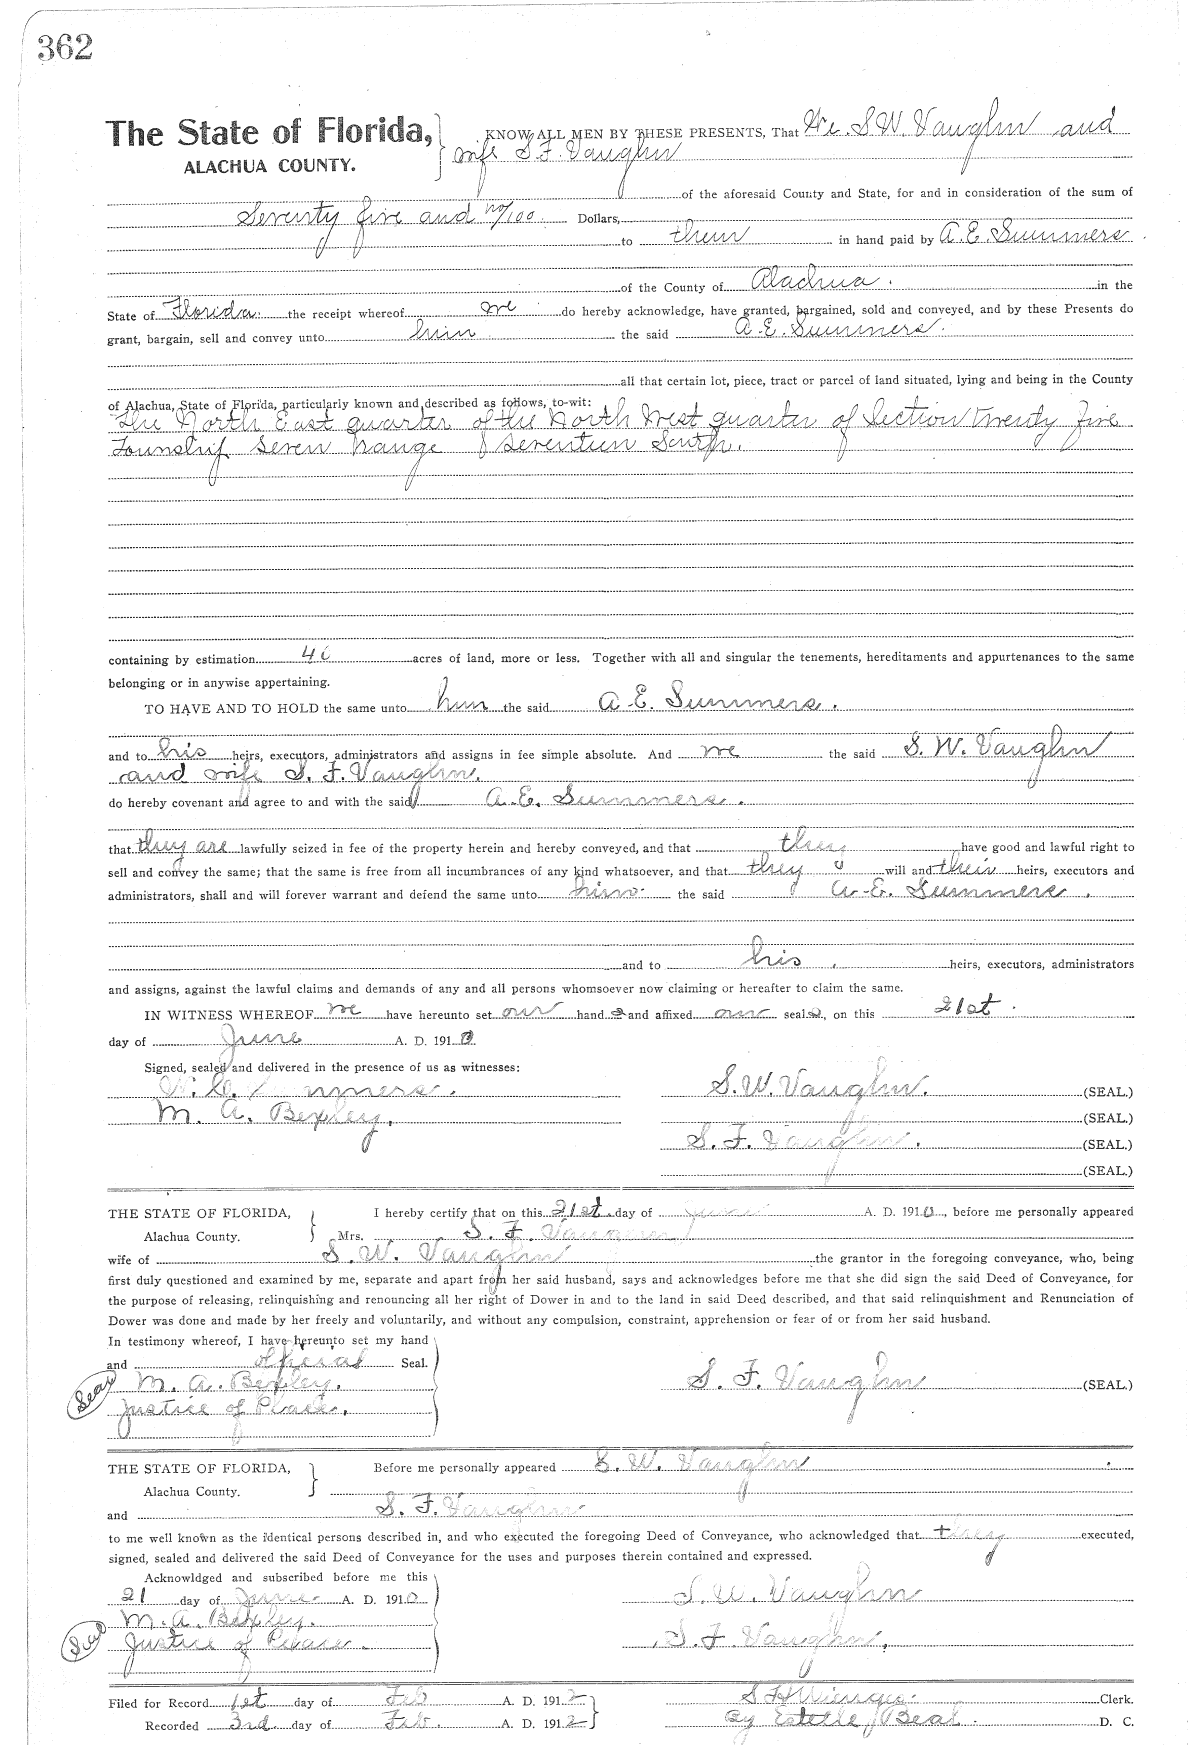 362
The State of Florida, KNOW ALL MEN BY THESE PRESENTS, That We S.W. Vaughn and
ALACHUA COUNTY. wife S.F. Vaughn
of the aforesaid County and State, for and in consideration of the sum of
Seventy five and no/100 Dollars,
to them in hand paid by A.E. Summers
of the County of Alachua. in the
State of Florida. the receipt whereof we do hereby acknowledge, have granted, bargained, sold and conveyed, and by these Presents do
grant, bargain, sell and convey unto him the said A.E. Summers.
all that certain lot, piece, tract or parcel of land situated, lying and being in the County
of Alachua, State of Florida, particularly known and described as follows, to-wit:
The North East quarter of the North West quarter of Section Twenty five
Township Seven Range Seventeen South.
containing by estimation 40 acres of land, more or less. Together with all and singular the tenements, hereditaments and appurtenances to the same
belonging or in anywise appertaining.
TO HAVE AND TO HOLD the same unto him the said A.E. Summers.
and to his heirs, executors, administrators and assigns in fee simple absolute. And we the said S. W. Vaughn
and wife S. F. Vaughn.
do hereby covenant and agree to and with the said A.E. Summers.
that they are lawfully seized in fee of the property herein and hereby conveyed, and that they have good and lawful right to
sell and convey the same; that the same is free from all incumbrances of any kind whatsoever, and that they will and their heirs, executors and
administrators, shall and will forever warrant and defend the same unto him the said A.E. Summers.
and to his heirs, executors, administrators
and assigns, against the lawful claims and demands of any and all persons whomsoever now claiming or hereafter to claim the same.
IN WITNESS WHEREOF we have hereunto set our hands and affixed our seals, on this 21st
day of June A. D. 1910
Signed, sealed and delivered in the presence of us as witnesses:
S.W. Vaughn. (SEAL.)
M. A. Bexley. (SEAL.)
S. F. Vaughn. (SEAL.)
(SEAL.)
THE STATE OF FLORIDA, I hereby certify that on this 21st day of June A. D. 1910, before me personally appeared
Alachua County. Mrs. S. F. Vaughn
wife of S. W. Vaughn the grantor in the foregoing conveyance, who, being
first duly questioned and examined by me, separate and apart from her said husband, says and acknowledges before me that she did sign the said Deed of Conveyance, for
the purpose of releasing, relinquishing and renouncing all her right of Dower in and to the land in said Deed described, and that said relinquishment and Renunciation of
Dower was done and made by her freely and voluntarily, and without any compulsion, constraint, apprehension or fear of or from her said husband.
In testimony whereof, I have hereunto set my hand
and official Seal.
Seal M. A. Bexley. S. F. Vaughn (SEAL.)
Justice of Peace.
THE STATE OF FLORIDA, Before me personally appeared S. W. Vaughn
Alachua County.
and S. F. Vaughn
to me well known as the identical persons described in, and who executed the foregoing Deed of Conveyance, who acknowledged that they executed,
signed, sealed and delivered the said Deed of Conveyance for the uses and purposes therein contained and expressed.
Acknowldged and subscribed before me this
21 day of June A. D. 1910 S. W. Vaughn
M. A. Bexley.
Seal Justice of Peace. S. F. Vaughn.
Filed for Record 1st day of Feb A. D. 1912 Clerk.
Recorded 3rd day of Feb. A. D. 1912 By Estelle Beal. D. C.